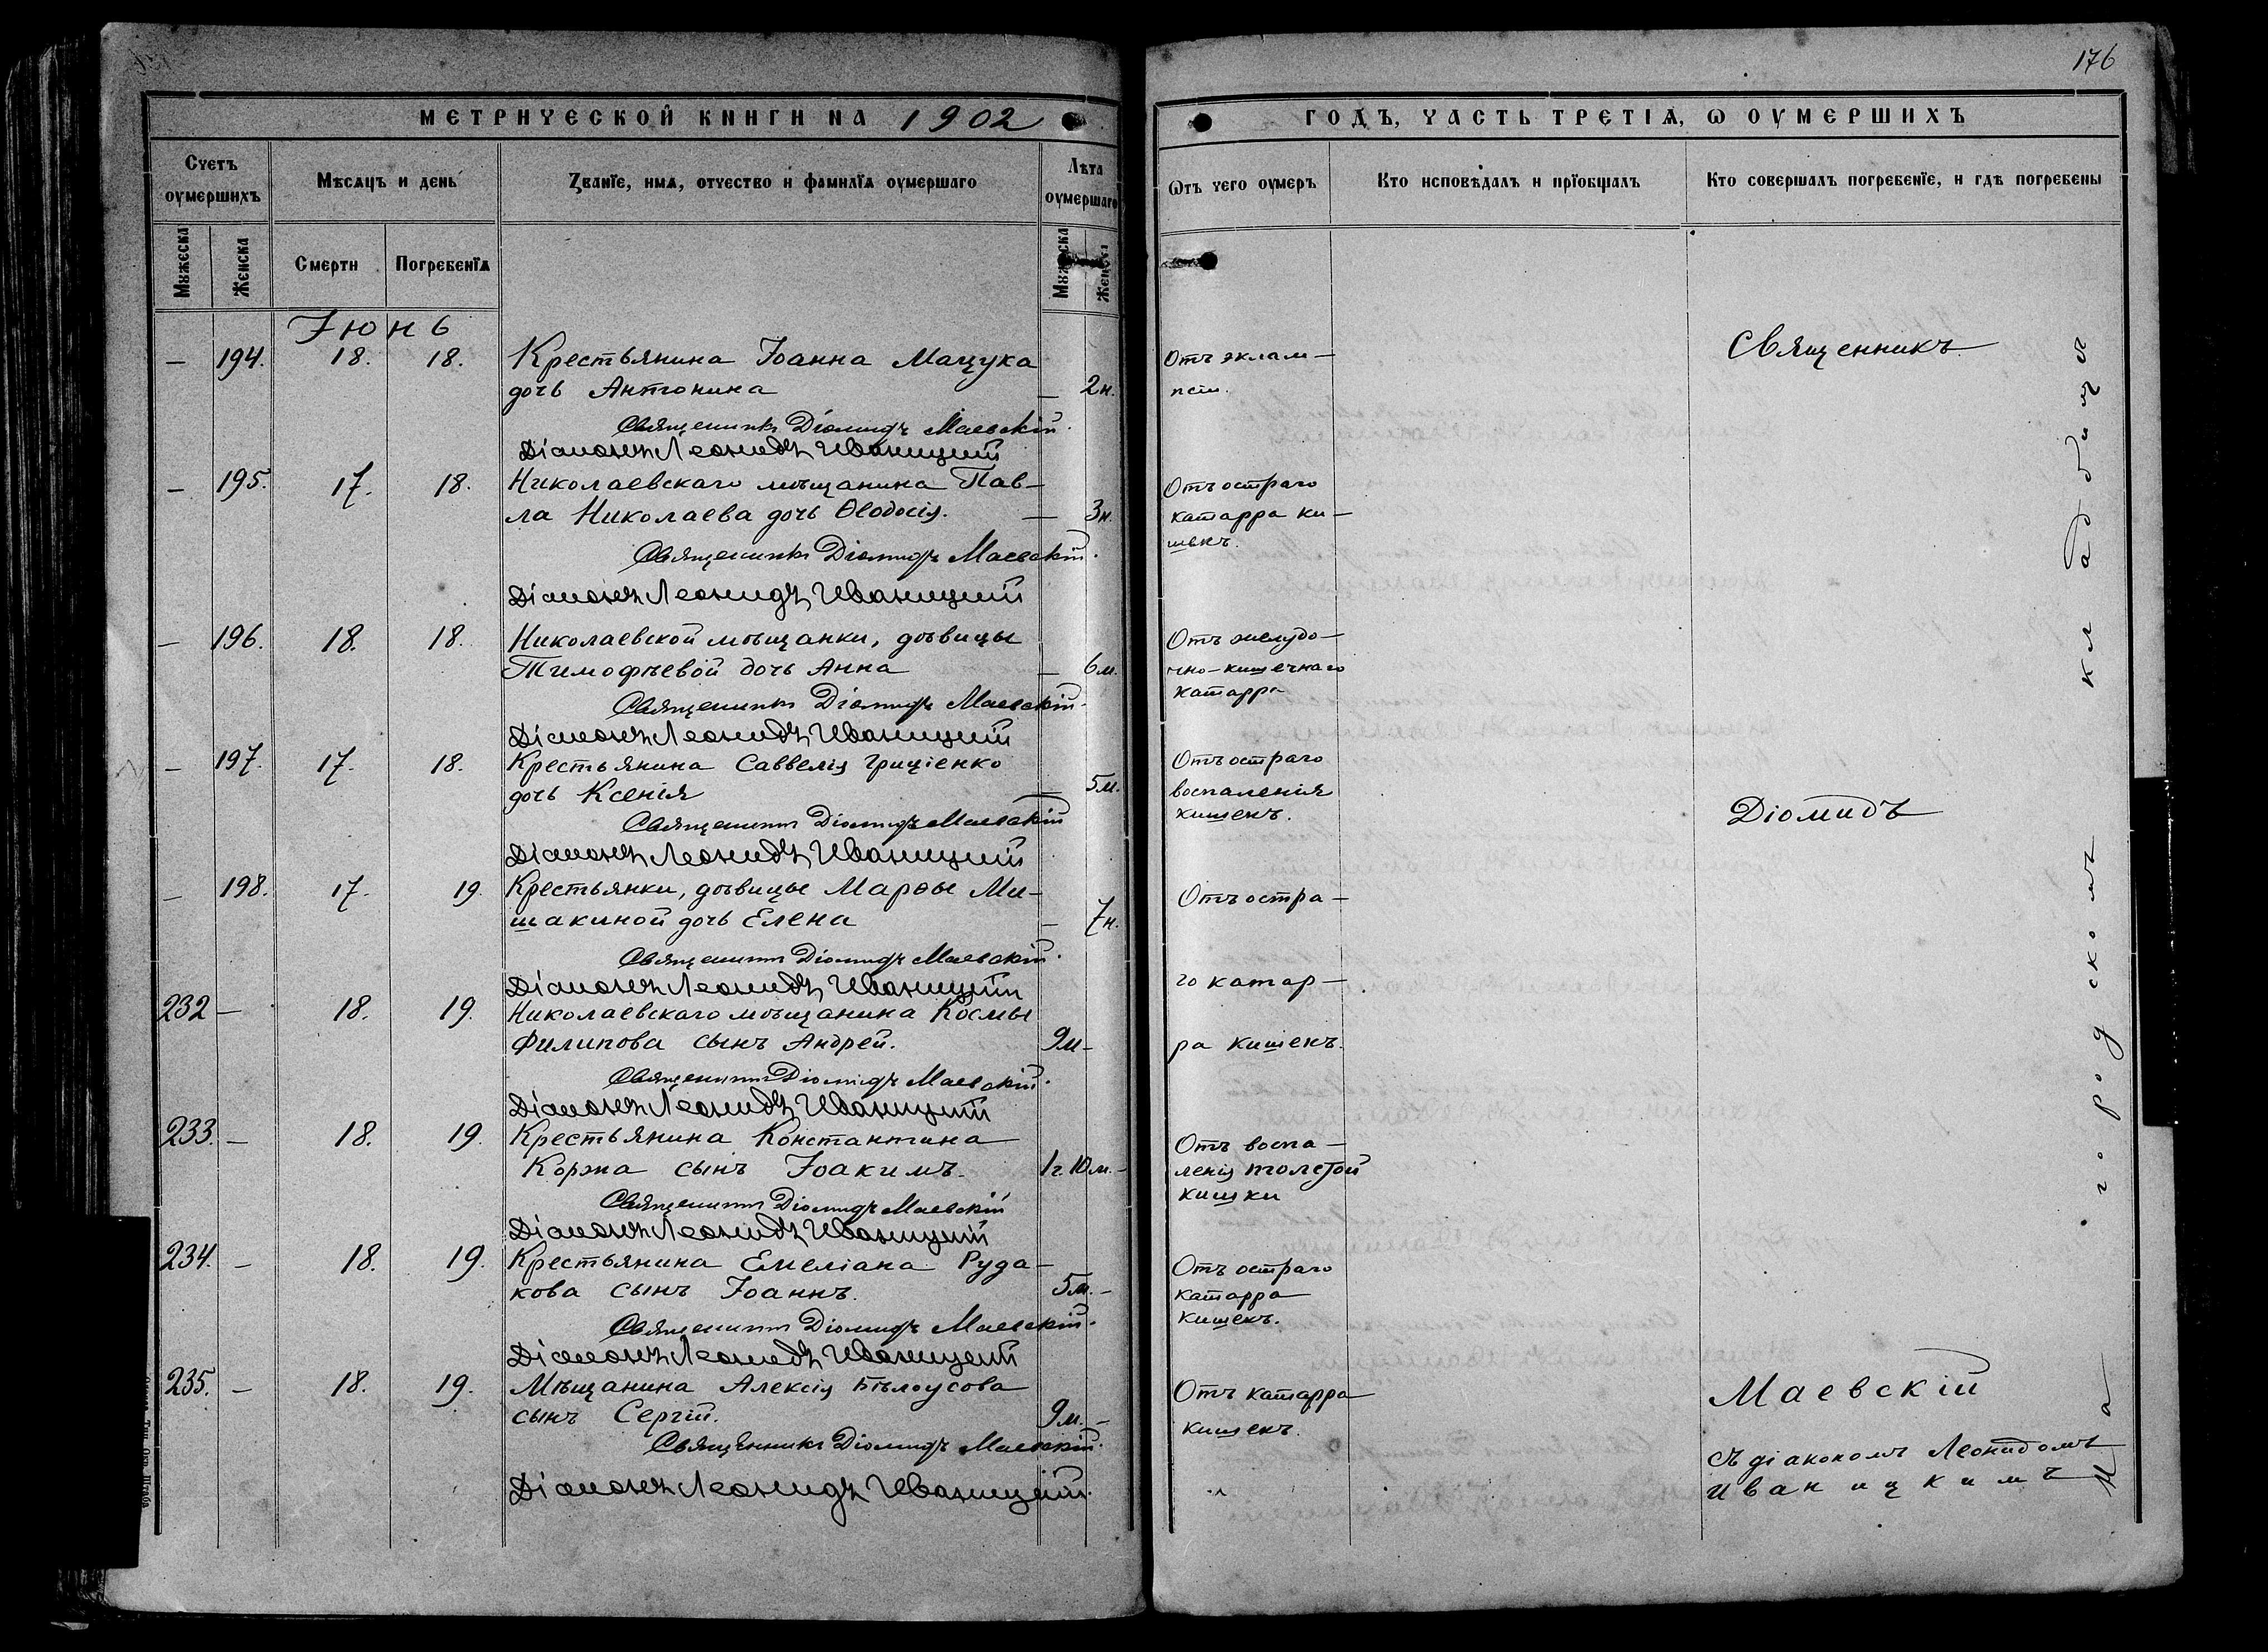 176
МЕТРИЧЕСКОЙ КНИГИ НА 1902
ГОДЪ, ЧАСТЬ ТРЕТІѦ, Ѡ ОУМЕРШИХЪ
Счетъ оумершихъ
Мѣсяцъ и день
Званїе, имѧ, отчество и фамилїѧ оумершаго
Лѣта оумершаго
Ѿтъ чего оумеръ
Кто исповѣдалъ и прїобщалъ
Кто совершалъ погребенїе, и гдѣ погребены
Мужеска
Женска
Смерти
Погребенїѧ
Мужеска
Женска
Іюнь
— 194. 18. 18. Крестьянина Іоанна Мацука
дочь Антонина — 2н.
Отъ эклам—
псіи.
Священникъ Діомидъ Маевскій.
Діаконъ Леонидъ Иваницкий
— 195. 17. 18. Николаевскаго мѣщанина Пав—
ла Николаева дочь Ѳеодосія. — 3н.
Отъ остраго
катарра ки—
шекъ.
Священникъ Діомидъ Маевскій.
Діаконъ Леонидъ Иваницкий
— 196. 18. 18. Николаевской мѣщанки, дѣвицы
Тимофѣевой дочь Анна — 6м.
Отъ желудо—
чно-кишечнаго
катарра
Священникъ Діомидъ Маевскій.
Діаконъ Леонидъ Иваницкий
— 197. 17. 18. Крестьянина Саввелія Гриціенко
дочь Ксенія — 5м.
Отъ остраго
воспаленія
кишекъ.
Священникъ Діомидъ Маевскій
Діаконъ Леонидъ Иваницкий
— 198. 17. 19. Крестьянки, дѣвицы Марѳы Ми—
шакиной дочь Елена — 7н.
Отъ остра—
го катар—
ра кишекъ.
Священникъ Діомидъ Маевскій.
Діаконъ Леонидъ Иваницкий
232 — 18. 19. Николаевскаго мѣщанина Космы
Филипова сынъ Андрей. 9м —
Священникъ Діомидъ Маевскій.
Діаконъ Леонидъ Иваницкий
233. — 18. 19. Крестьянина Константина
Коржа сынъ Іоакимъ. 1г. 10м. —
Отъ воспа—
ленія толстой
кишки
Священникъ Діомидъ Маевскій
Діаконъ Леонидъ Иваницкий
234. — 18. 19. Крестьянина Емеліана Руда—
кова сынъ Іоаннъ. 5м. —
Отъ остраго
катарра
кишекъ.
Священникъ Діомидъ Маевскій.
Діаконъ Леонидъ Иваницкий
235. — 18. 19. Мѣщанина Алексія Бѣлоусова
сынъ Сергій. 9м. —
Отъ катарра
кишекъ.
Священникъ Діомидъ Маевскій.
Діаконъ Леонидъ Иваницкій.
Священникъ
Діомидъ
Маевскій
съ діакономъ Леонидомъ
Иваницкимъ
На городскомъ кладбищѣ